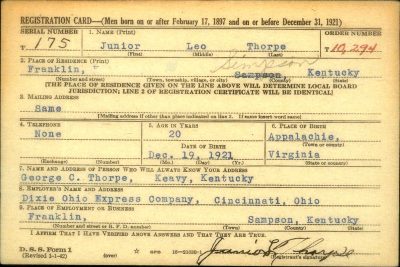 REGISTRATION CARD—(Men born on or after February 17, 1897 and on or before December 31, 1921)
SERIAL NUMBER 1. NAME (Print) ORDER NUMBER
T 175 Junior Leo Thorpe T 10,294
(First) (Middle) (Last)
2. PLACE OF RESIDENCE (Print) Simpson
Franklin, Sampson, Kentucky
(Number and street) (Town, township, village, or city) (County) (State)
(THE PLACE OF RESIDENCE GIVEN ON THE LINE ABOVE WILL DETERMINE LOCAL BOARD
JURISDICTION; LINE 2 OF REGISTRATION CERTIFICATE WILL BE IDENTICAL)
3. MAILING ADDRESS
Same
(Mailing address if other than place indicated on line 2. If same insert word same)
4. TELEPHONE 5. AGE IN YEARS 6. PLACE OF BIRTH
None 20 Appalachie,
DATE OF BIRTH (Town or county)
Dec. 19, 1921 Virginia
(Exchange) (Number) (Mo.) (Day) (Yr.) (State or country)
7. NAME AND ADDRESS OF PERSON WHO WILL ALWAYS KNOW YOUR ADDRESS
George C. Thorpe, Keavy, Kentucky
8. EMPLOYER'S NAME AND ADDRESS
Dixie Ohio Express Company, Cincinnati, Ohio
9. PLACE OF EMPLOYMENT OR BUSINESS
Franklin, Sampson, Kentucky
(Number and street or R. F. D. number) (Town) (County) (State)
I AFFIRM THAT I HAVE VERIFIED ABOVE ANSWERS AND THAT THEY ARE TRUE.
D. S. S. Form 1
(Revised 1-1-42) (over) (Registrant's signature)